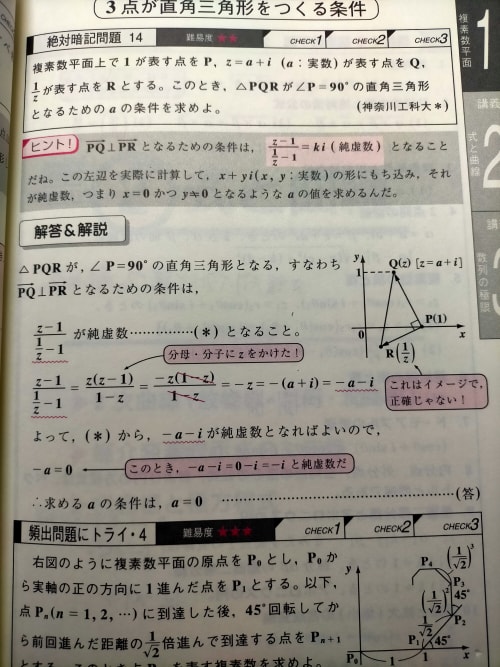 3点が直角三角形をつくる条件
絶対暗記問題 14 難易度 ★★ CHECK1 CHECK2 CHECK3
複素数平面上で 1 が表す点を P, z=a+i (a:実数) が表す点を Q,
1/z が表す点を R とする。このとき, △PQR が∠P=90°の直角三角形
となるための a の条件を求めよ。 (神奈川工科大*)
ヒント! PQ⊥PR となるための条件は, (z-1)/(1/z-1)=ki (純虚数) となること
だね。この左辺を実際に計算して, x+yi(x, y:実数) の形にもち込み, それ
が純虚数, つまり x=0 かつ y≠0 となるような a の値を求めるんだ。
解答&解説
△PQR が, ∠P=90°の直角三角形となる, すなわち
PQ⊥PR となるための条件は,
(z-1)/(1/z-1) が純虚数…………(*) となること。
分母・分子に z をかけた!
(z-1)/(1/z-1)=z(z-1)/(1-z)=-z(1-z)/(1-z)=-z=-(a+i)=-a-i
よって, (*) から, -a-i が純虚数となればよいので,
-a=0 このとき, -a-i=0-i=-i と純虚数だ
∴求める a の条件は, a=0 ……………………………(答)
y
1
Q(z) [z=a+i]
P(1)
0
x
R(1/z)
これはイメージで,
正確じゃない!
頻出問題にトライ・4 難易度 ★★★ CHECK1 CHECK2 CHECK3
右図のように複素数平面の原点を P0 とし, P0 か
ら実軸の正の方向に 1 進んだ点を P1 とする。以下,
点 Pn(n=1, 2, …) に到達した後, 45°回転してか
ら前回進んだ距離の 1/√2 倍進んで到達する点を Pn+1
y
(1/√2)^3
P4
P3
45°
(1/√2)^2
P2
1/√2
P1
45°
P0
1
x
1
複素数平面
講義
式と曲線
2
講義
数列の極限